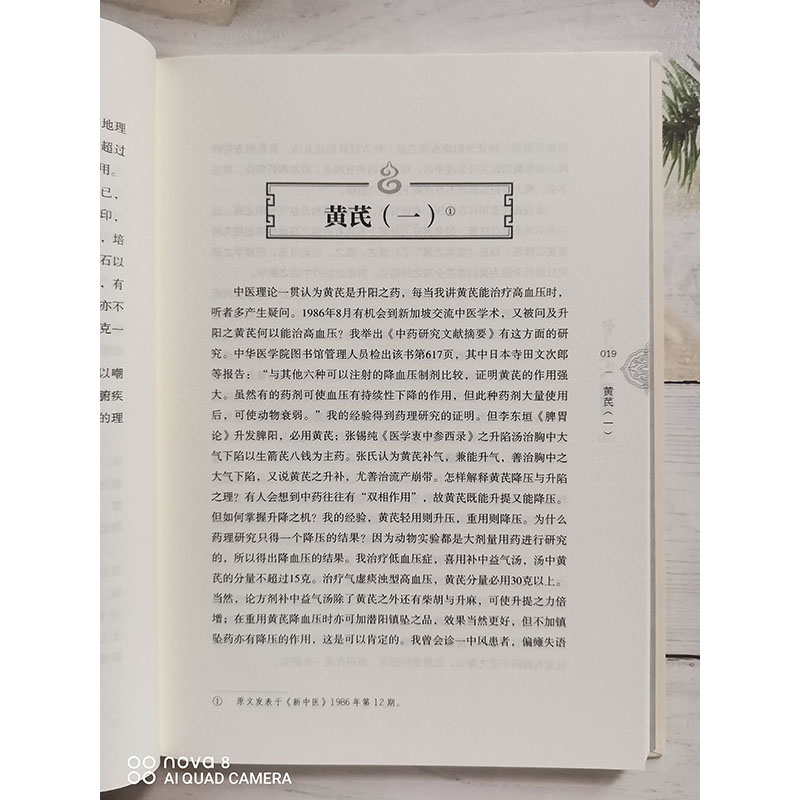 地理
超过
用。
已,
印、
,培
石以
,有
亦不
克一
以嘲
腑疾
的理
黄芪(一)①
中医理论一贯认为黄芪是升阳之药,每当我讲黄芪能治疗高血压时,
听者多产生疑问。1986年8月有机会到新加坡交流中医学术,又被问及升
阳之黄芪何以能治高血压?我举出《中药研究文献摘要》有这方面的研
究。中华医学院图书馆管理人员检出该书第617页,其中日本寺田文次郎
等报告:“与其他六种可以注射的降血压制剂比较,证明黄芪的作用强
大。虽然有的药剂可使血压有持续性下降的作用,但此种药剂大量使用
后,可使动物衰弱。”我的经验得到药理研究的证明。但李东垣《脾胃
论》升发脾阳,必用黄芪;张锡纯《医学衷中参西录》之升陷汤治胸中大
气下陷以生箭芪八钱为主药。张氏认为黄芪补气,兼能升气,善治胸中之
大气下陷,又说黄芪之升补,尤善治流产崩带。怎样解释黄芪降压与升陷
之理?有人会想到中药往往有“双相作用”,故黄芪既能升提又能降压。
但如何掌握升降之机?我的经验,黄芪轻用则升压,重用则降压。为什么
药理研究只得一个降压的结果?因为动物实验都是大剂量用药进行研究
的,所以得出降血压的结果。我治疗低血压症,喜用补中益气汤,汤中黄
芪的分量不超过15克。治疗气虚痰浊型高血压,黄芪分量必用30克以上。
当然,论方剂补中益气汤除了黄芪之外还有柴胡与升麻,可使升提之力倍
增;在重用黄芪降血压时亦可加潜阳镇坠之品,效果当然更好,但不加镇
坠药亦有降压的作用,这是可以肯定的。我曾会诊一中风患者,偏瘫失语
① 原文发表于《新中医》1986年第12期。
019
黄芪(一)
nova 8
AI QUAD CAMERA